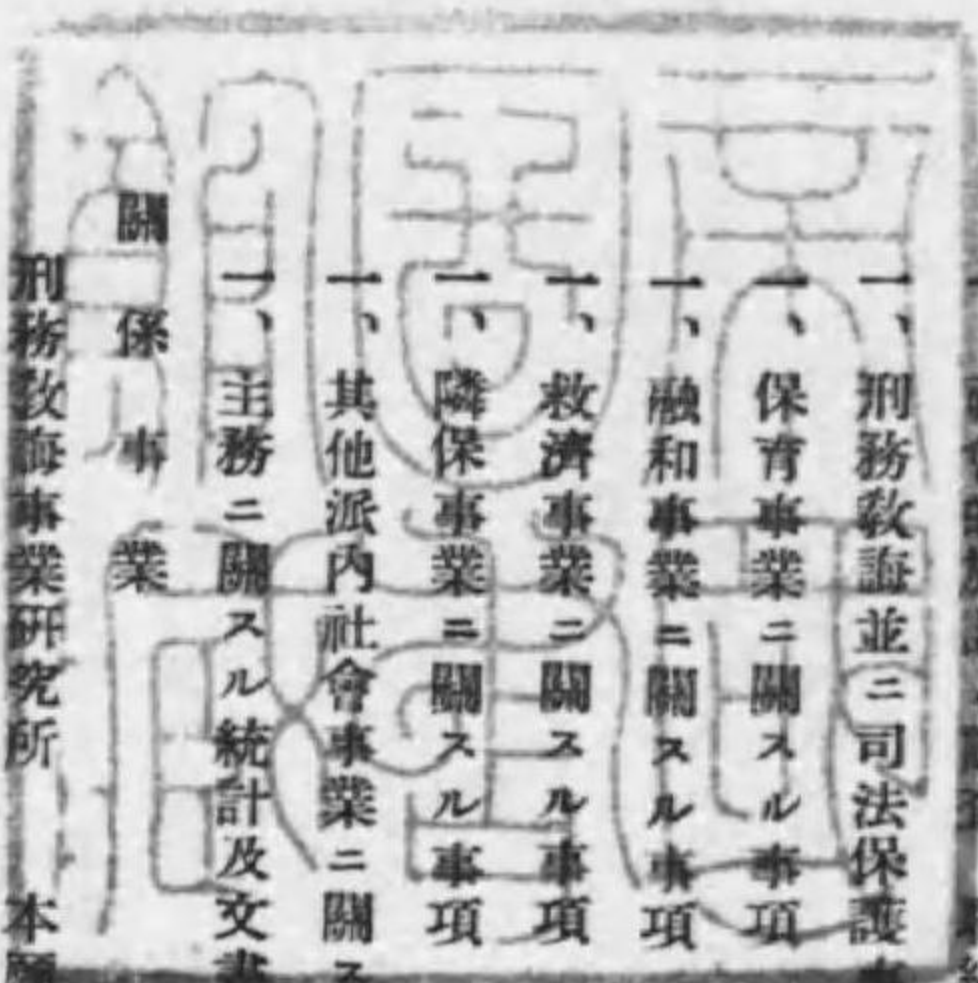 一、刑務敎誨並ニ司法保護
一、保育事業ニ關スル事項
一、融和事業ニ關スル事項
一、救濟事業ニ關スル事項
一、隣保事業ニ關スル事項
一、其他派內社會事業ニ關ス
一、主務ニ關スル統計及文書
關係事業
刑務敎誨事業硏究所 本願